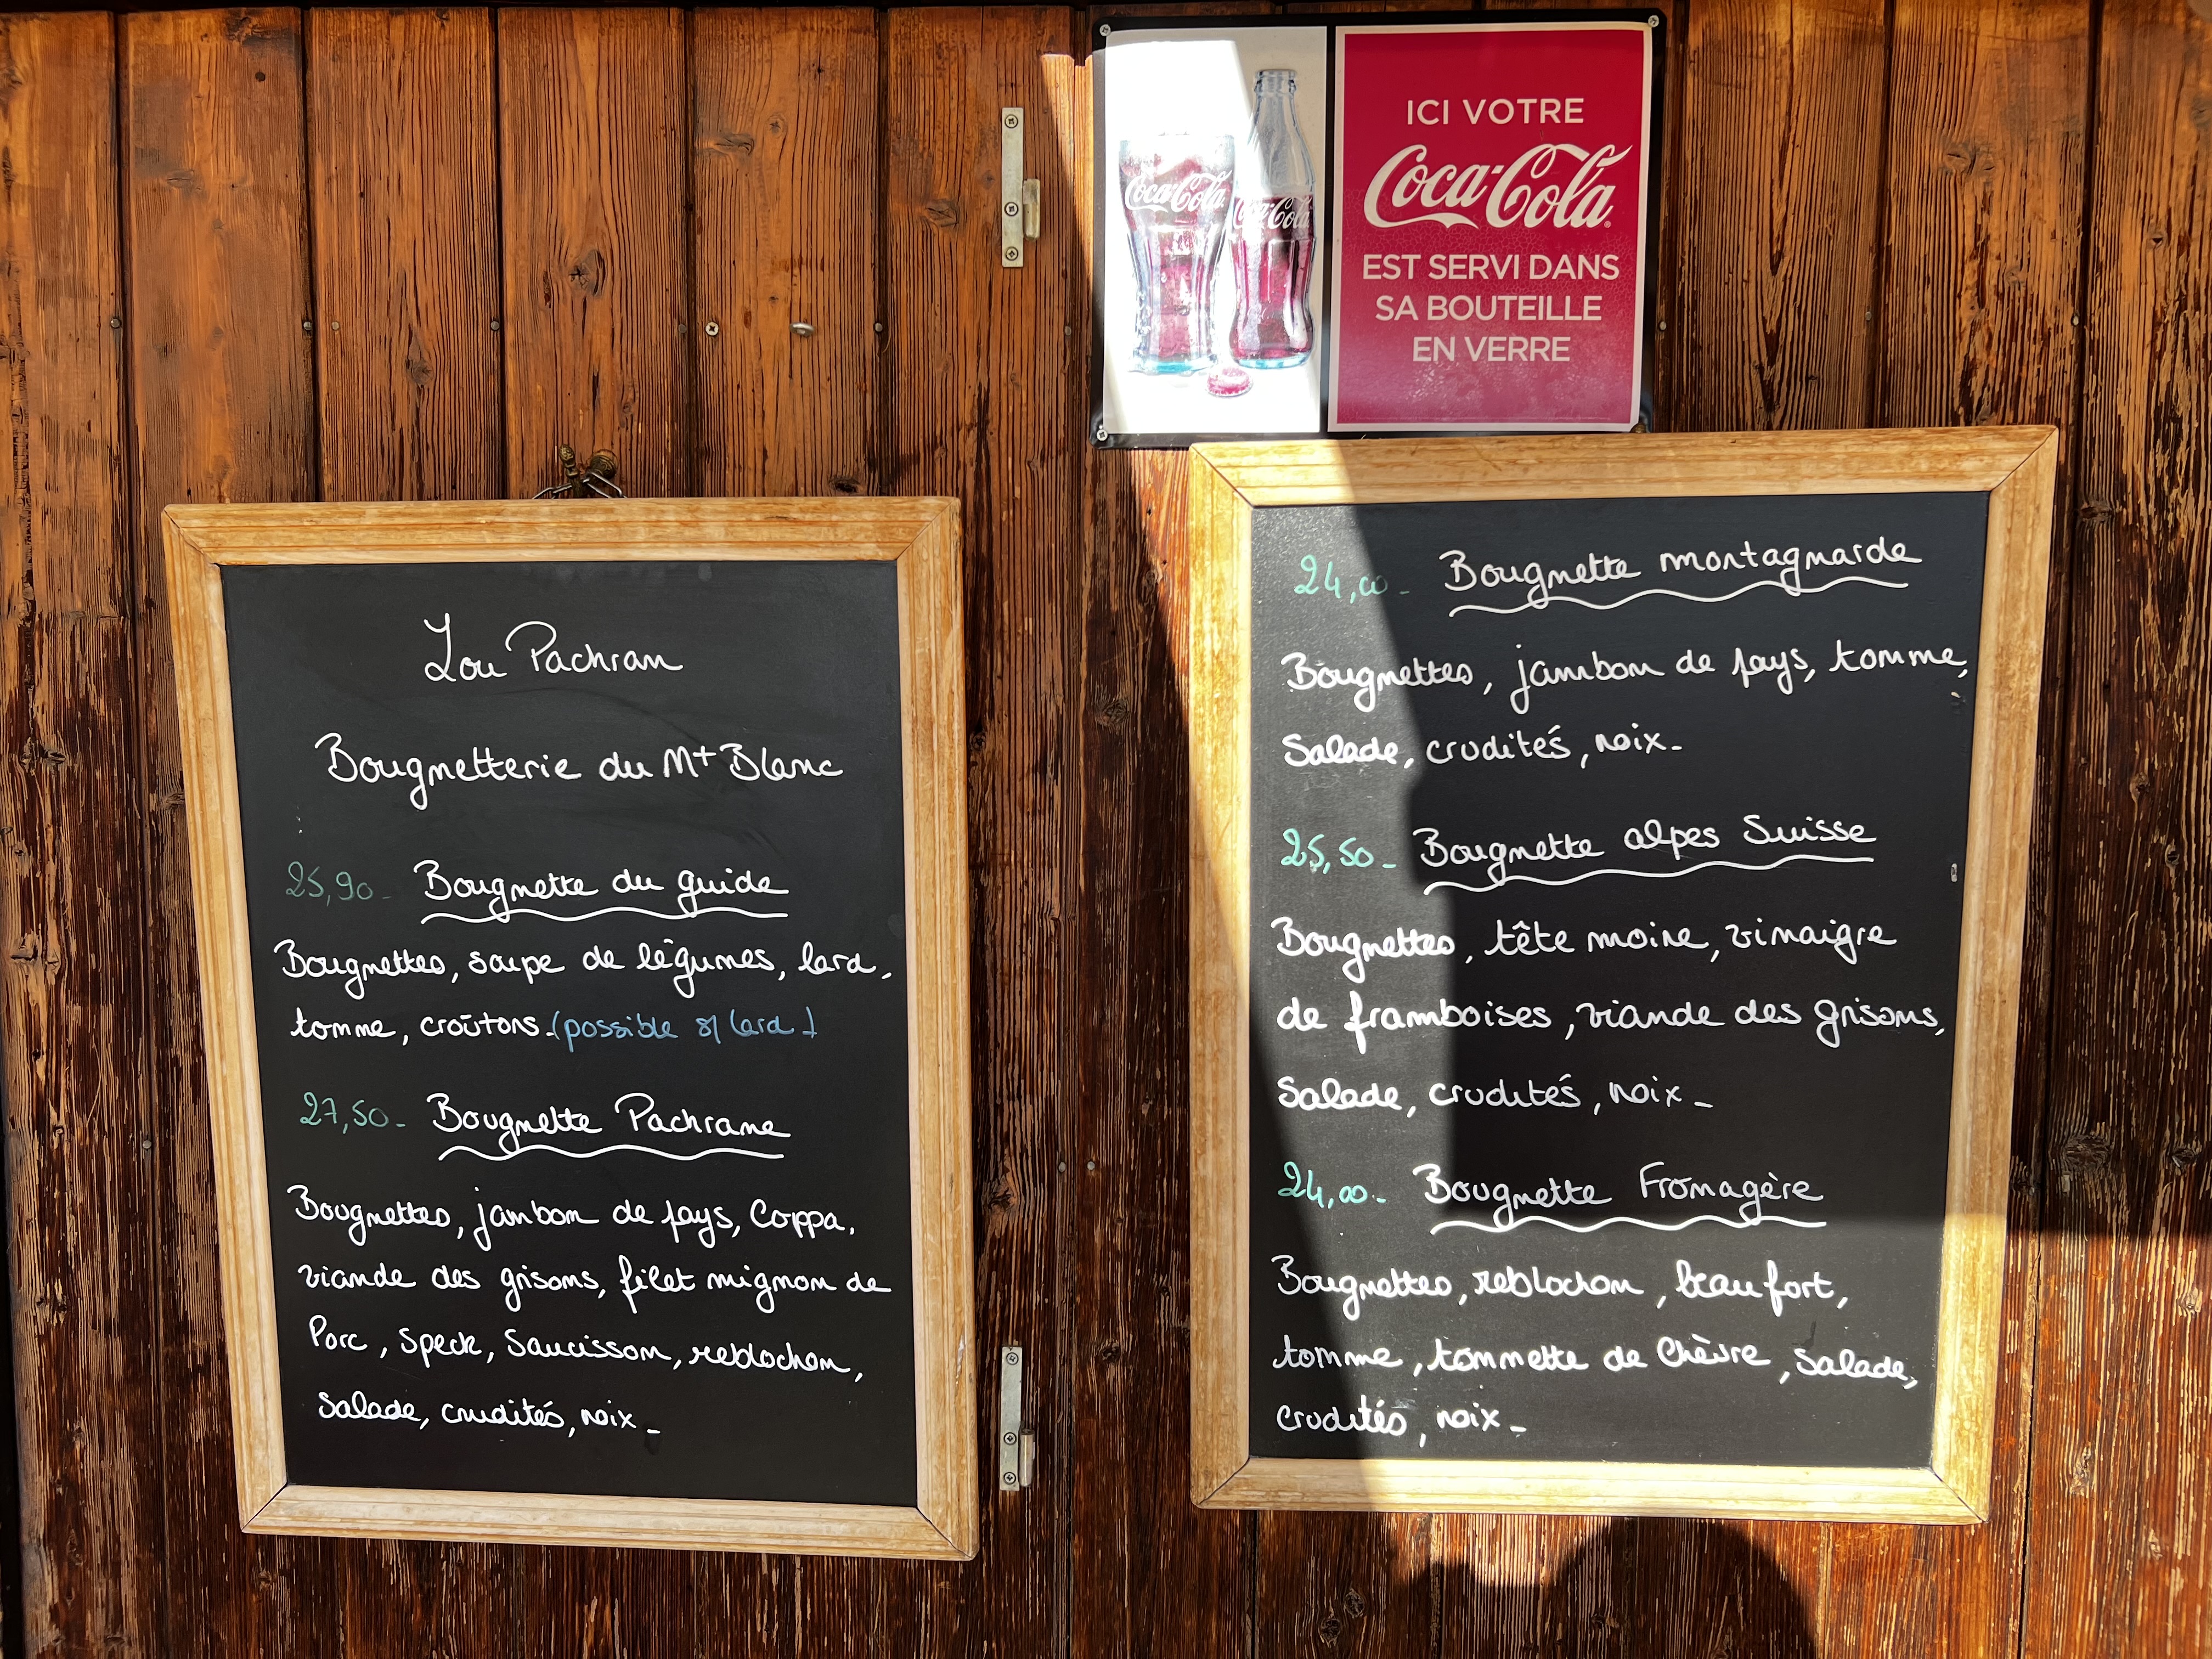 Lou Pachran
Bougnetterie du Mt Blanc
25,90- Bougnette du guide
Bougnettes, soupe de légumes, lard,
tomme, croûtons. (possible s/ lard)
27,50- Bougnette Pachrane
Bougnettes, jambon de pays, Coppa,
viande des grisons, filet mignon de
Porc, Speck, Saucisson, reblochon,
Salade, crudités, noix -
ICI VOTRE
Coca-Cola
EST SERVI DANS
SA BOUTEILLE
EN VERRE
Coca-Cola
Coca-Cola
24,00- Bougnette montagnarde
Bougnettes, jambon de pays, tomme,
Salade, crudités, noix -
25,50- Bougnette alpes Suisse
Bougnettes, tête moine, vinaigre
de framboises, viande des grisons,
Salade, crudités, noix -
24,00- Bougnette Fromagère
Bougnettes, reblochon, beaufort,
tomme, tommette de Chèvre, Salade,
crudités, noix -